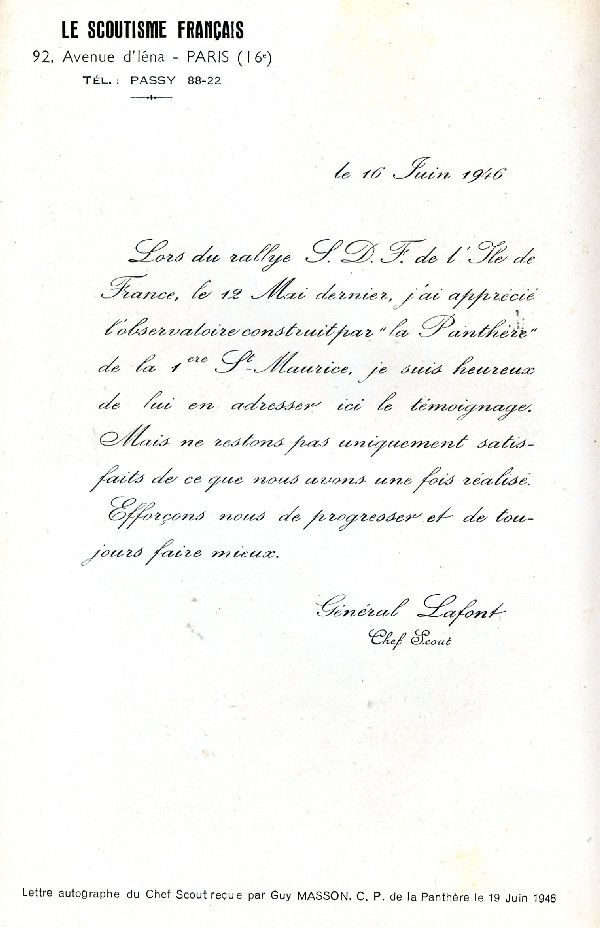 LE SCOUTISME FRANÇAIS
92, Avenue d'Iéna - PARIS (16e)
TÉL. : PASSY 88-22
le 16 Juin 1946
Lors du rallye S. D. F. de l'Ile de
France, le 12 Mai dernier, j'ai apprécié
l'observatoire construit par "la Panthère"
de la 1ere St-Maurice, je suis heureux
de lui en adresser ici le témoignage.
Mais ne restons pas uniquement satis-
faits de ce que nous avons une fois réalisé.
Efforçons nous de progresser et de tou-
jours faire mieux.
Général Lafont
Chef Scout
Lettre autographe du Chef Scout reçue par Guy MASSON. C. P. de la Panthère le 19 Juin 1946